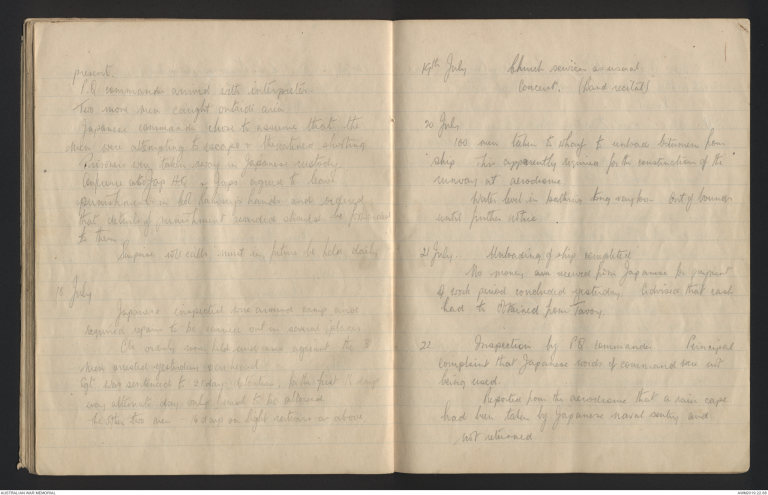 present.
P.Q. commander arrived with interpreter.
Two more men caught outside area.
Japanese commander chose to assume that the
men were attempting to escape & threatened shooting
Prisoners were taken away in Japanese custody
Conference at Jap HQ. Japs agreed to leave
punishment in hands and ordered
that details of punishment awarded should be forwarded
to them
Surprise roll calls must in future be held daily
18 July
Japanese inspected wire around camp and
required repairs to be carried out in several places.
COs orderly room held and case against the 3
men arrested yesterday was heard.
Sgt was sentenced to 21 days detention,
alternate days only bread to be allowed
the other two men days on light rations as above
19th July Church services as usual
Concert. (band recital)
20 July
100 men taken to wharf to unload bitumen from
ship. This apparently required for the construction of the
runway at aerodrome.
Water level in bathing too low. Out of bounds
until further notice.
21 July. Unloading of ship completed
No money was received from Japanese for payment
of work period concluded yesterday. Advised that cash
had to be obtained from Tavoy.
22 Inspection by P.Q. commander Principal
complaint that Japanese words of command were not
being used.
Reported from the aerodrome that a rain cape
had been taken by Japanese naval sentry and
not returned
AUSTRALIAN WAR MEMORIAL